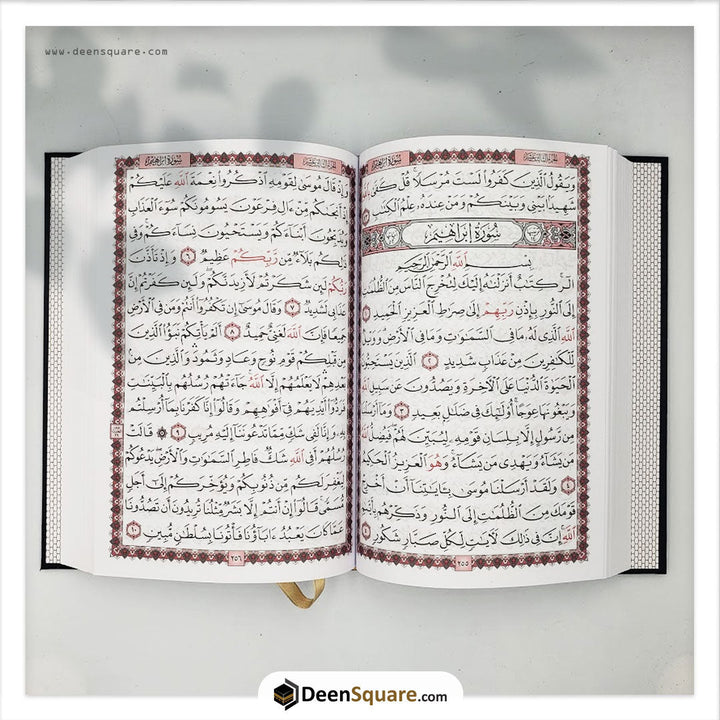 www.deensquare.com
الجزء الثالث عشر سورة إبراهيم
وَيَقُولُ الَّذِينَ كَفَرُوا لَسْتَ مُرْسَلًا قُلْ كَفَى
شَهِيدًا بَيْنِي وَبَيْنَكُمْ وَمَنْ عِندَهُ عِلْمُ الْكِتَٰبِ
سُورَةُ إِبْرَاهِيمَ
بِسْمِ اللَّهِ الرَّحْمَٰنِ الرَّحِيمِ
الٓر كِتَٰبٌ أَنزَلْنَٰهُ إِلَيْكَ لِتُخْرِجَ النَّاسَ مِنَ الظُّلُمَٰتِ
إِلَى النُّورِ بِإِذْنِ رَبِّهِمْ إِلَىٰ صِرَٰطِ الْعَزِيزِ الْحَمِيدِ ١
اللَّهِ الَّذِي لَهُ مَا فِي السَّمَٰوَٰتِ وَمَا فِي الْأَرْضِ وَوَيْلٌ
لِّلْكَٰفِرِينَ مِنْ عَذَابٍ شَدِيدٍ ٢ الَّذِينَ يَسْتَحِبُّونَ
الْحَيَوٰةَ الدُّنْيَا عَلَى الْآخِرَةِ وَيَصُدُّونَ عَن سَبِيلِ اللَّهِ
وَيَبْغُونَهَا عِوَجًا أُولَٰئِكَ فِي ضَلَٰلٍ بَعِيدٍ ٣ وَمَا أَرْسَلْنَا
مِن رَّسُولٍ إِلَّا بِلِسَانِ قَوْمِهِ لِيُبَيِّنَ لَهُمْ فَيُضِلُّ اللَّهُ
مَن يَشَاءُ وَيَهْدِي مَن يَشَاءُ وَهُوَ الْعَزِيزُ الْحَكِيمُ
٤ وَلَقَدْ أَرْسَلْنَا مُوسَىٰ بِـَٔايَٰتِنَا أَنْ أَخْرِجْ
قَوْمَكَ مِنَ الظُّلُمَٰتِ إِلَى النُّورِ وَذَكِّرْهُم بِأَيَّىٰمِ
اللَّهِ إِنَّ فِي ذَٰلِكَ لَآيَٰتٍ لِّكُلِّ صَبَّارٍ شَكُورٍ ٥
٢٥٥
الجزء الثالث عشر سورة إبراهيم
وَإِذْ قَالَ مُوسَىٰ لِقَوْمِهِ اذْكُرُوا نِعْمَةَ اللَّهِ عَلَيْكُمْ
إِذْ أَنجَىٰكُم مِّنْ ءَالِ فِرْعَوْنَ يَسُومُونَكُمْ سُوءَ الْعَذَابِ
وَيُذَبِّحُونَ أَبْنَاءَكُمْ وَيَسْتَحْيُونَ نِسَاءَكُمْ وَفِي
ذَٰلِكُم بَلَاءٌ مِّن رَّبِّكُمْ عَظِيمٌ ٦ وَإِذْ تَأَذَّنَ
رَبُّكُمْ لَئِن شَكَرْتُمْ لَأَزِيدَنَّكُمْ وَلَئِن كَفَرْتُمْ إِنَّ
عَذَابِي لَشَدِيدٌ ٧ وَقَالَ مُوسَىٰ إِن تَكْفُرُوا أَنتُمْ وَمَن فِي الْأَرْضِ
جَمِيعًا فَإِنَّ اللَّهَ لَغَنِيٌّ حَمِيدٌ ٨ أَلَمْ يَأْتِكُمْ نَبَؤُا الَّذِينَ
مِن قَبْلِكُمْ قَوْمِ نُوحٍ وَعَادٍ وَثَمُودَ وَالَّذِينَ مِن
بَعْدِهِمْ لَا يَعْلَمُهُمْ إِلَّا اللَّهُ جَاءَتْهُمْ رُسُلُهُم بِالْبَيِّنَٰتِ
فَرَدُّوا أَيْدِيَهُمْ فِي أَفْوَٰهِهِمْ وَقَالُوا إِنَّا كَفَرْنَا بِمَا أُرْسِلْتُم
بِهِ وَإِنَّا لَفِي شَكٍّ مِّمَّا تَدْعُونَنَا إِلَيْهِ مُرِيبٍ ٩ ۞ قَالَتْ
رُسُلُهُمْ أَفِي اللَّهِ شَكٌّ فَاطِرِ السَّمَٰوَٰتِ وَالْأَرْضِ يَدْعُوكُمْ
لِيَغْفِرَ لَكُم مِّن ذُنُوبِكُمْ وَيُؤَخِّرَكُمْ إِلَىٰ أَجَلٍ
مُّسَمًّى قَالُوا إِنْ أَنتُمْ إِلَّا بَشَرٌ مِّثْلُنَا تُرِيدُونَ أَن تَصُدُّونَا
عَمَّا كَانَ يَعْبُدُ ءَابَاؤُنَا فَأْتُونَا بِسُلْطَٰنٍ مُّبِينٍ ١٠
٢٥٦
DeenSquare.com